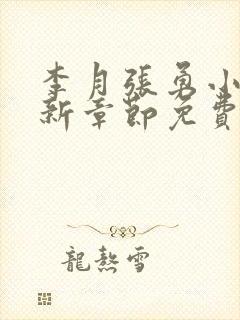 李月張勇小
新章節免費
龍熬雪